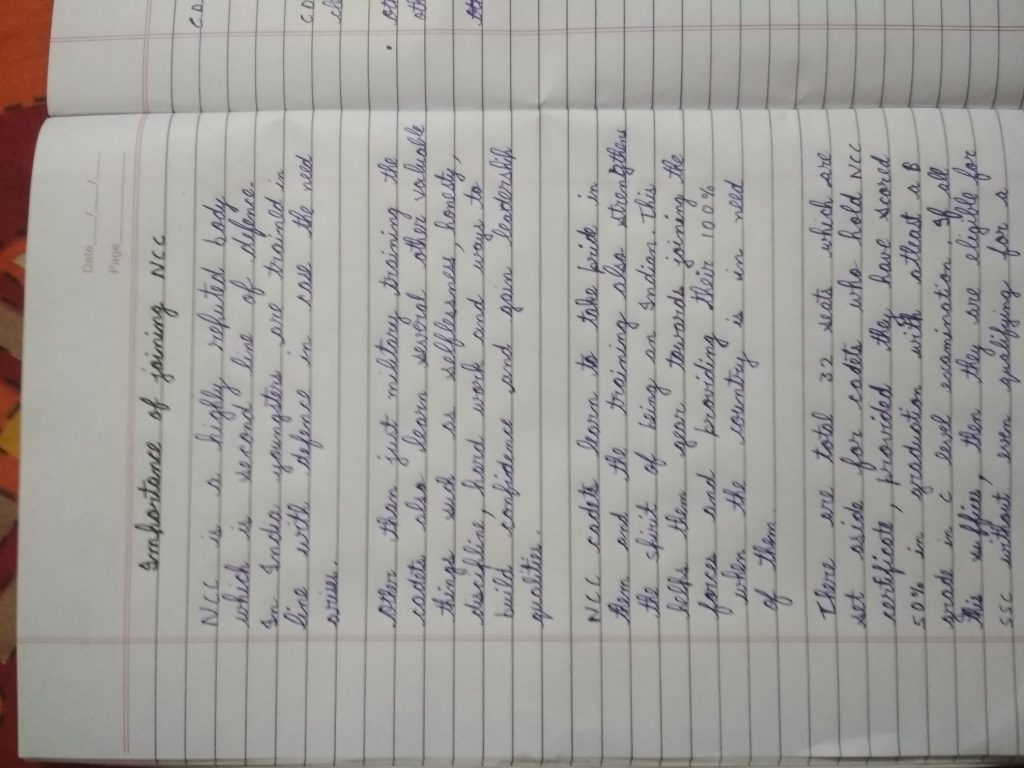 Date __/__/__
Page
Importance of joining NCC
NCC is a highly reputed body
which is second line of defence.
In India youngsters are trained in
line with defence in case the need
arises.
Other then just military training the
cadets also learn several other valuable
things such as selflessness, honesty,
discipline, hard work and ways to
build confidence and gain leadership
qualities.
NCC cadets learn to take pride in
them and the training also strengthens
the spirit of being an Indian. This
helps them gear towards joining the
forces and providing their 100%
when the country is in need
of them.
There are total 32 sets which are
set aside for cadets who hold NCC
certificate, provided they have scored
50% in graduation with atleast a B
grade in C level examination. If all
this suffies, then they are eligible for
SSC without even qualifying for a
CD
CD